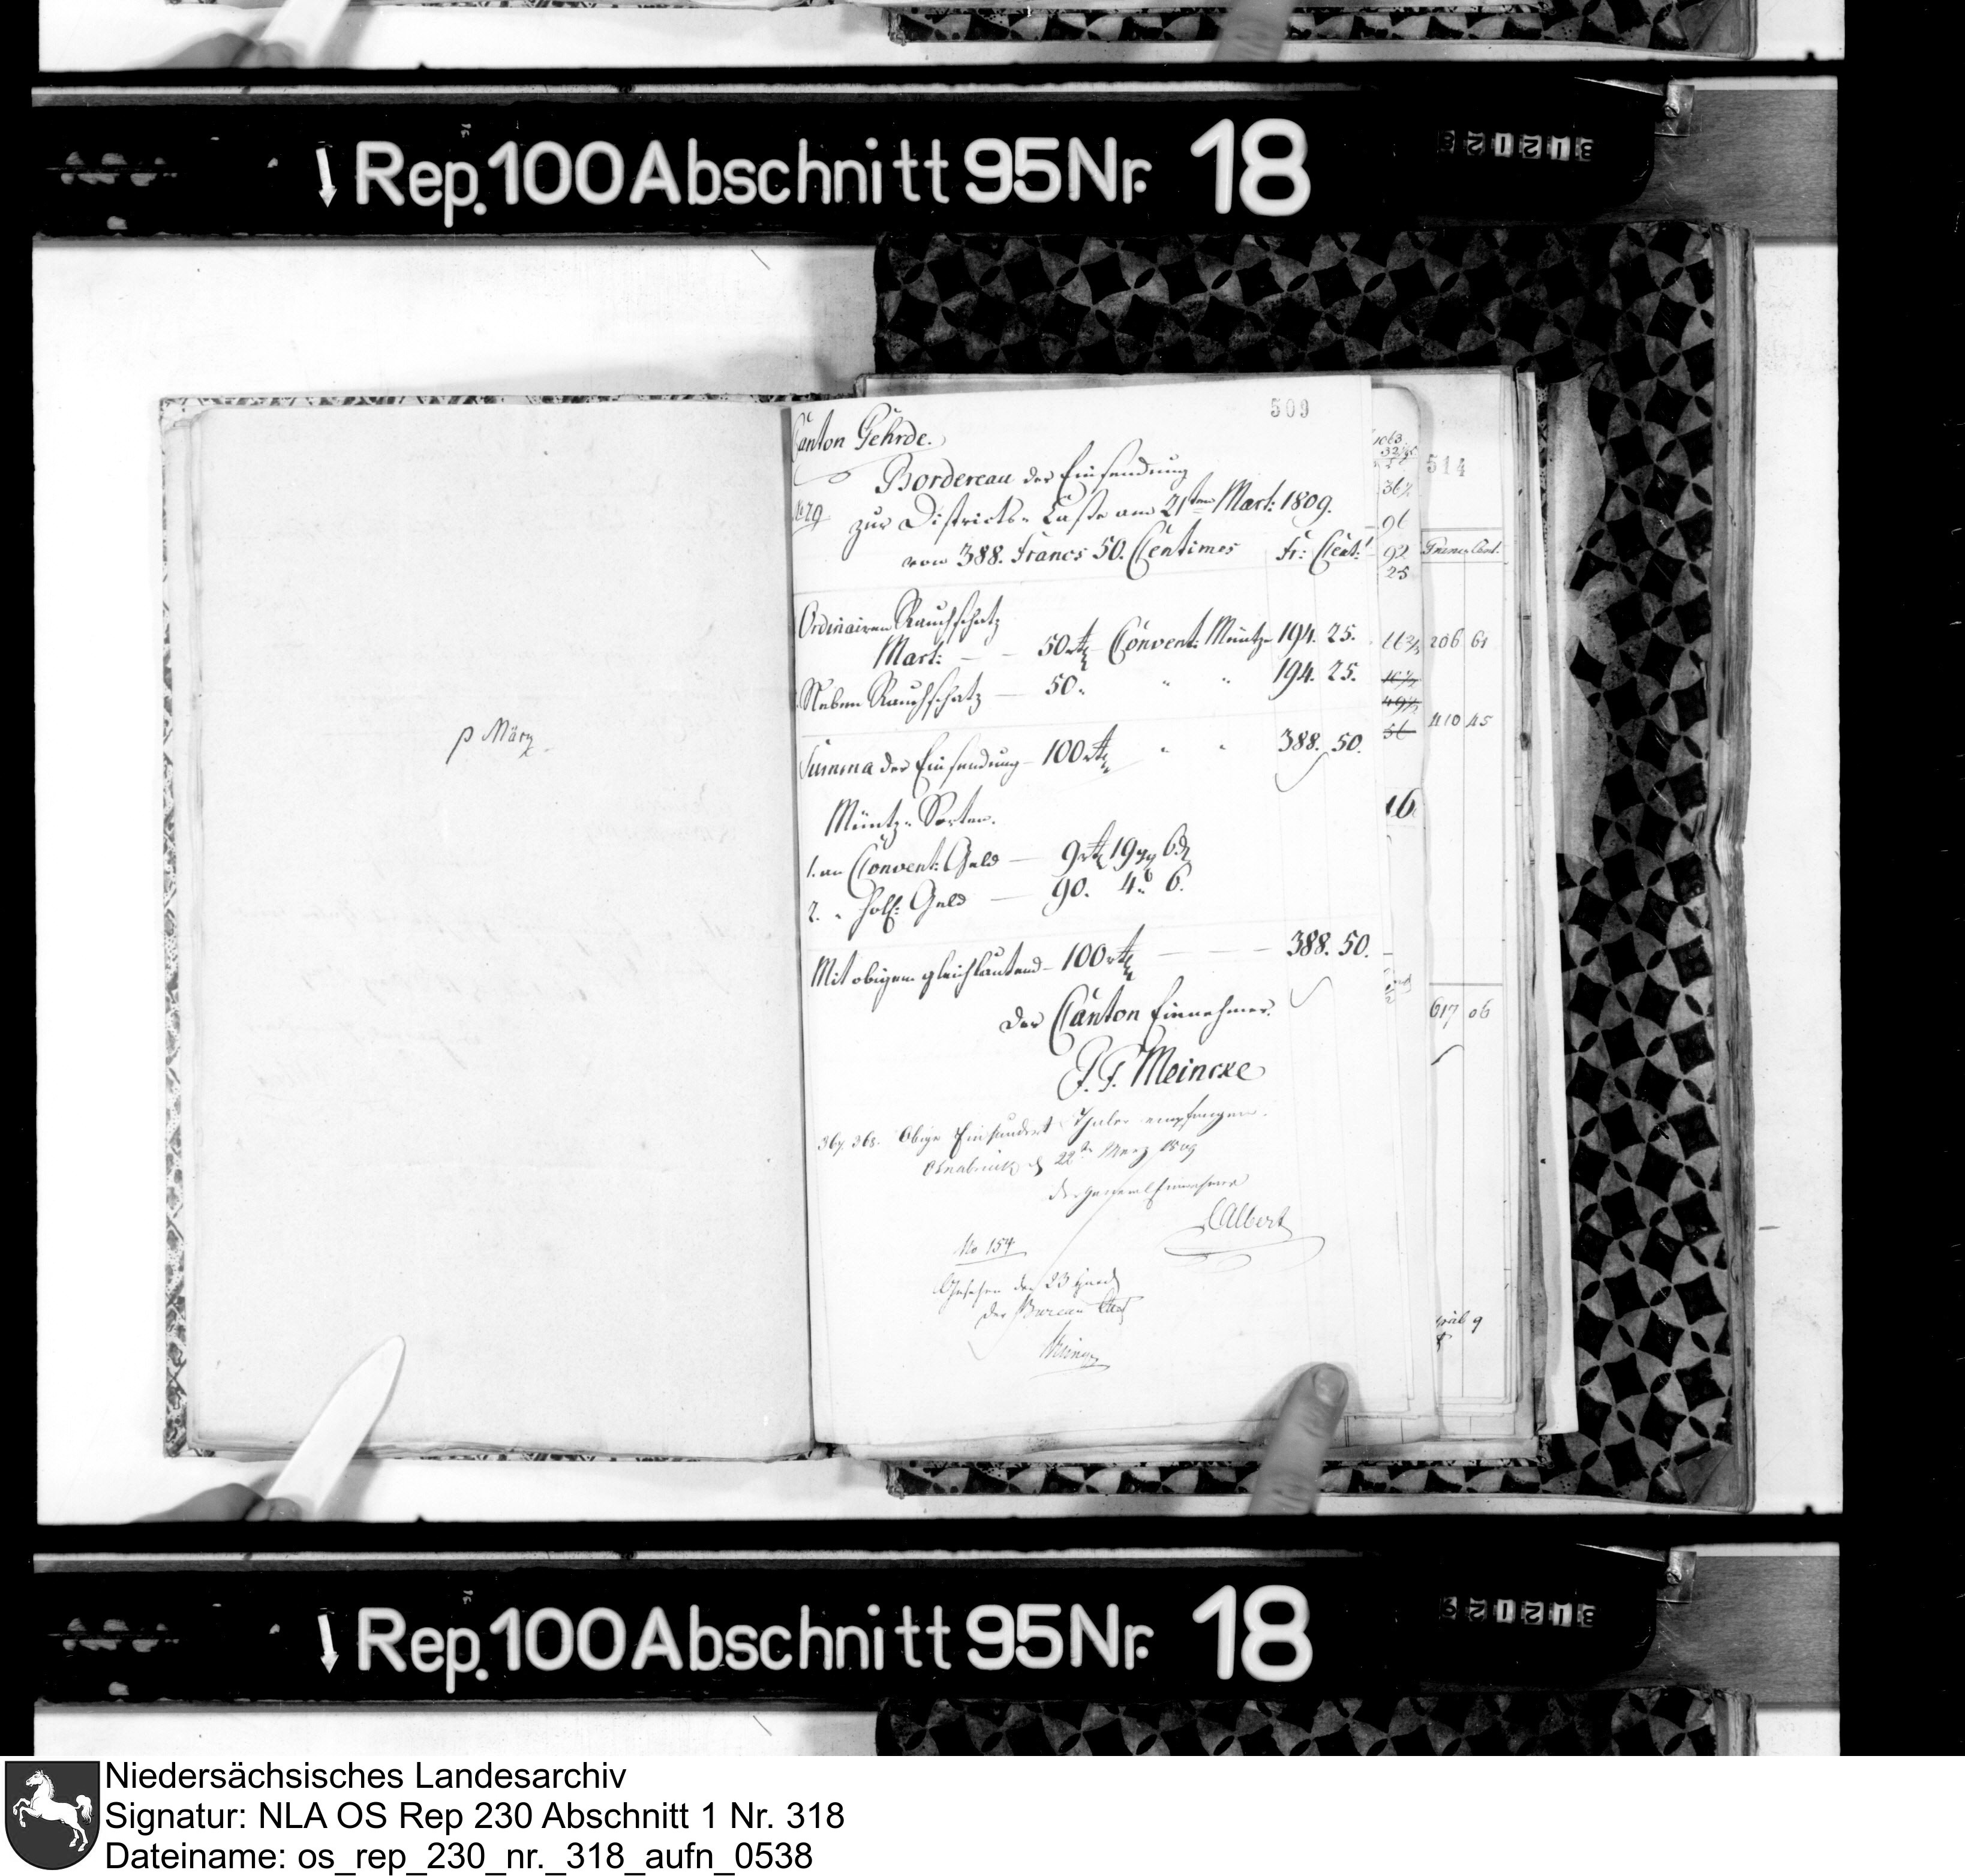 Rep. 100 Abschnitt 95 Nr. 18
p März
509
Canton Gehrde.
Bordereau der Einsendung
No 29 zur Districts-Casse am 21ten Mart: 1809.
von 388. Francs 50. Centimes Fr: Cent:
Ordinairen Rauchschatz
Mart: — 50 rt Convent: Müntze 194. 25.
Neben Rauchschatz — 50. " " 194. 25.
Summa der Einsendung — 100 rt " " 388. 50.
Müntz-Sorten.
1. an Convent: Geld — 9 rt 19 ggr 6 d
2. " holl: Geld — 90. 4. 6.
Mit obigem gleichlautend — 100 rt — 388. 50.
Der Canton Einnehmer.
Meincke
367. 368. Obige Einhundert Thaler empfangen.
Osnabrück d 22te Merz 1809
der General Einnehmer
CAlbert
No 154
Gesehen den 23
der Bureau Chef
514
Francs Cent.
206 61
410 45
617 06
Rep. 100 Abschnitt 95 Nr. 18
Niedersächsisches Landesarchiv
Signatur: NLA OS Rep 230 Abschnitt 1 Nr. 318
Dateiname: os_rep_230_nr._318_aufn_0538